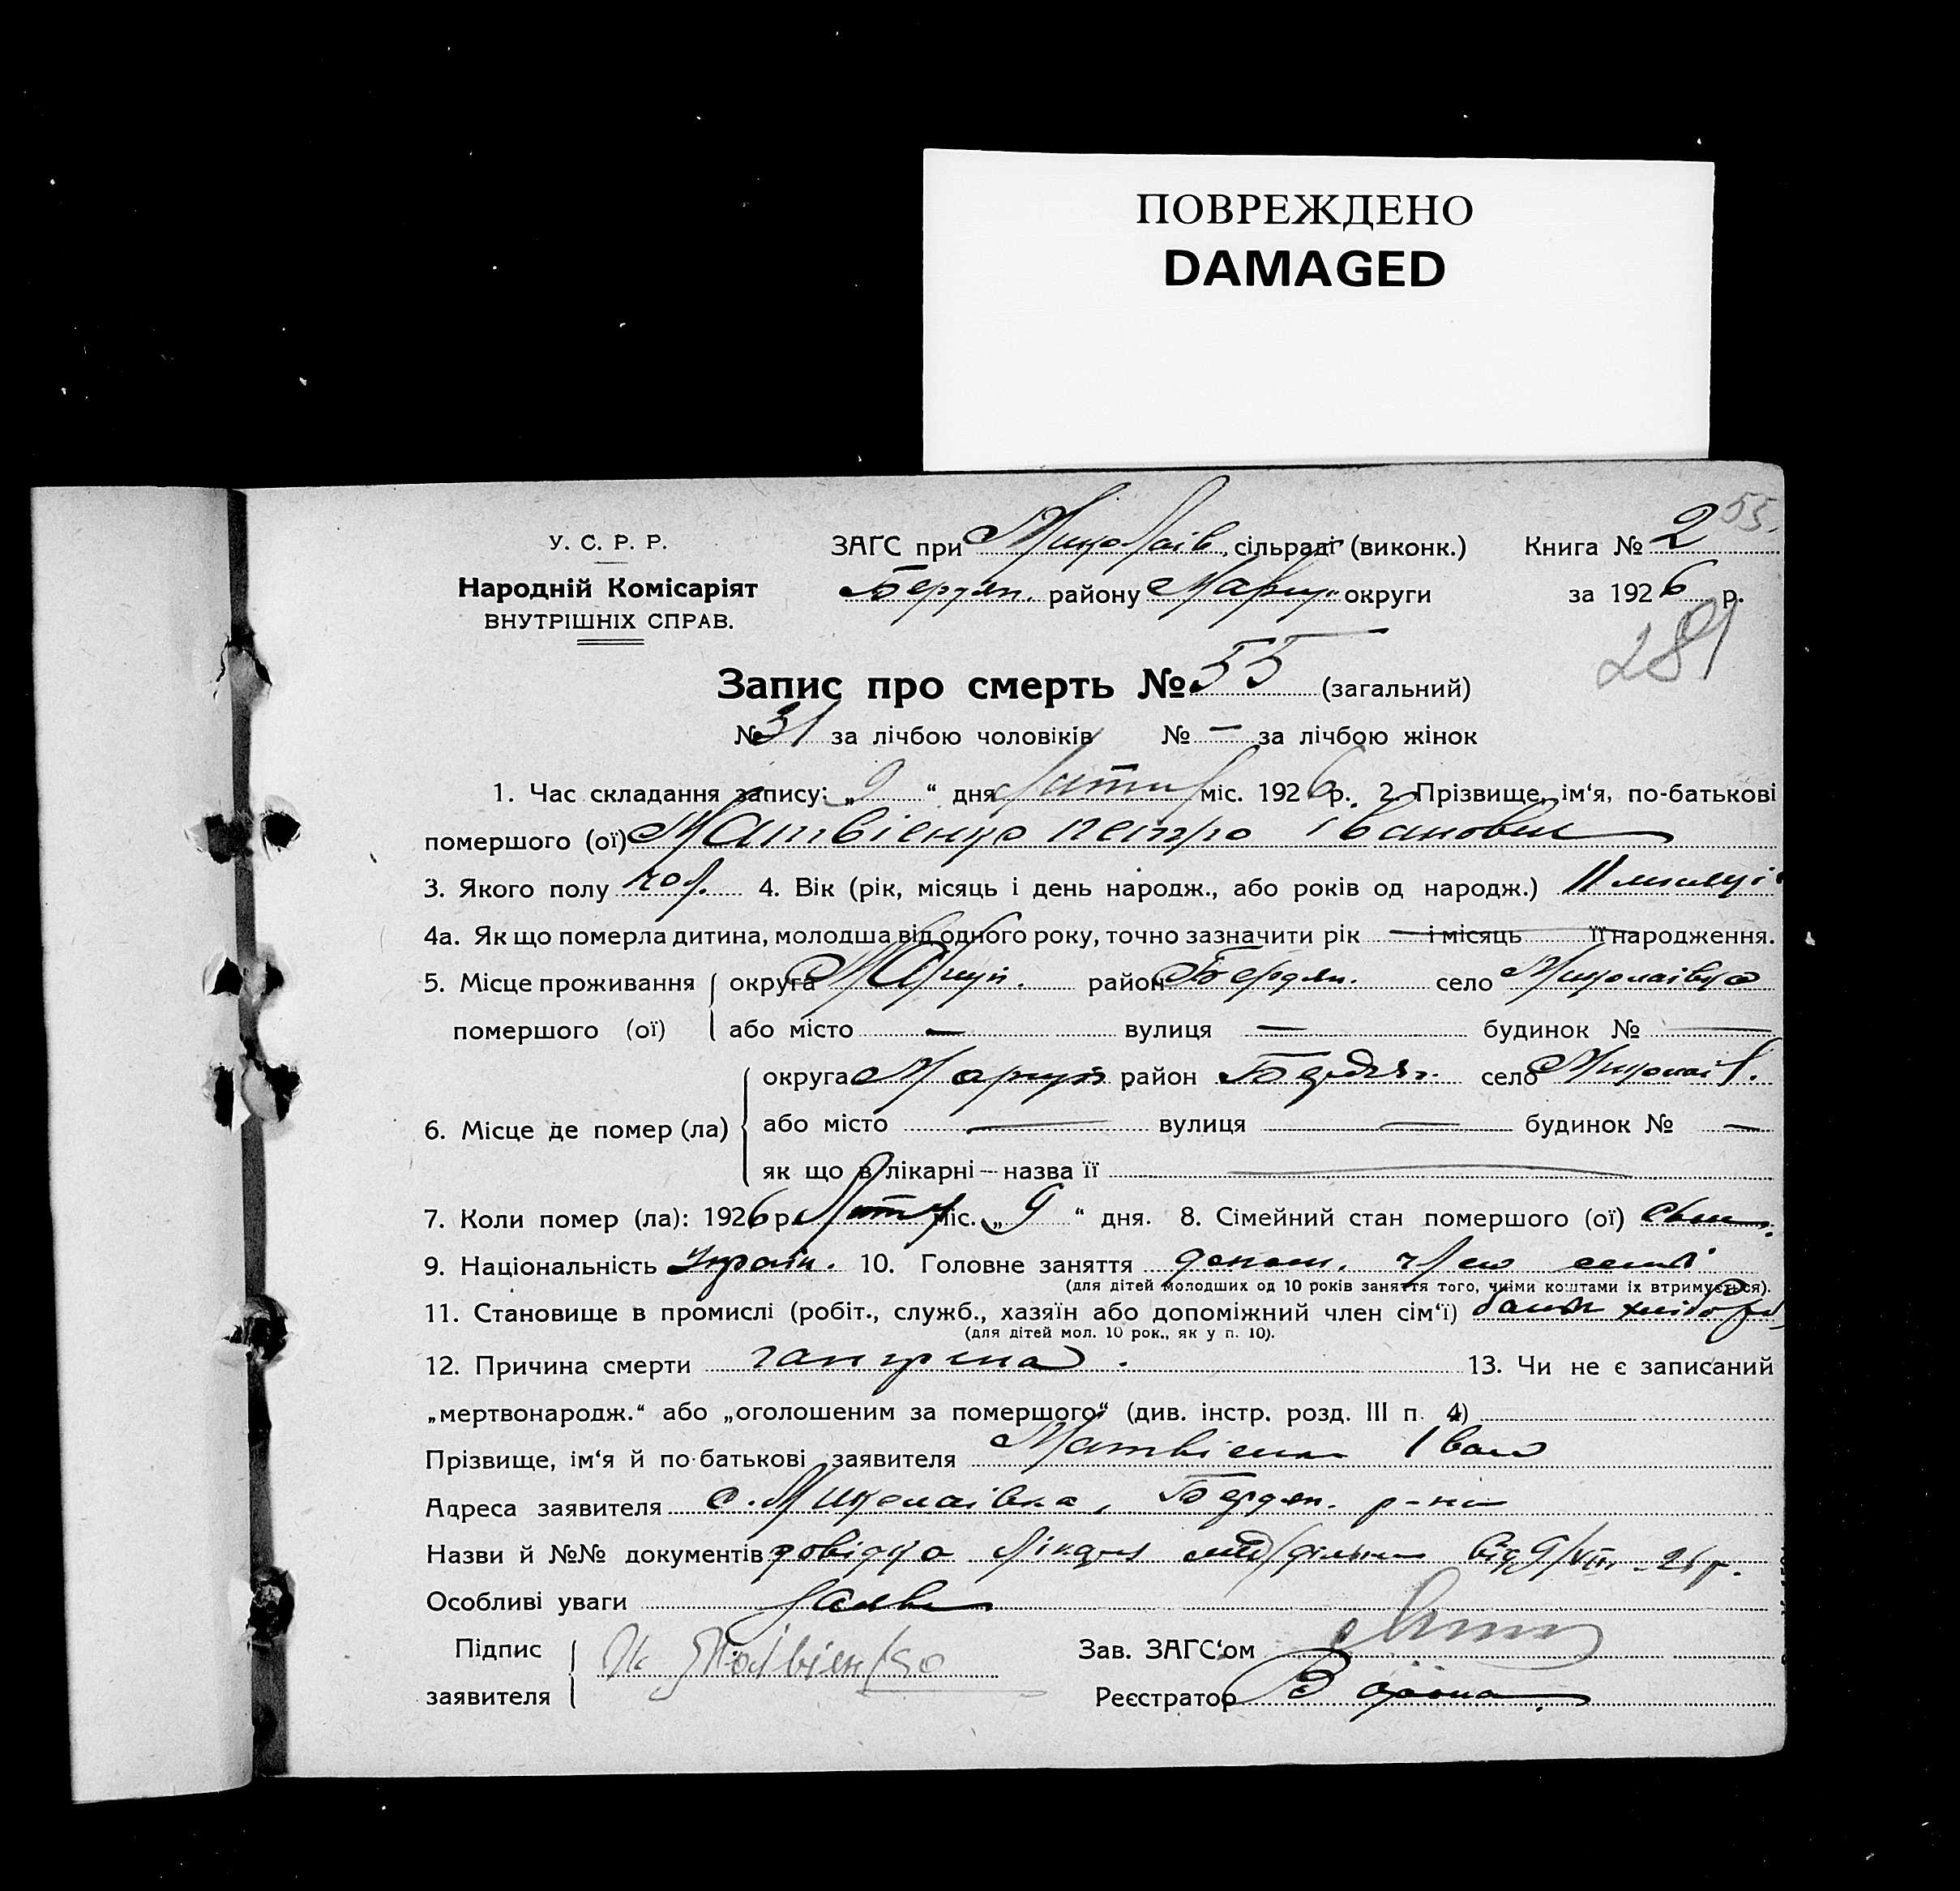 ПОВРЕЖДЕНО
DAMAGED
55.
У. С. Р. Р.
ЗАГС при Миколаїв. сільраді (виконк.) Книга № 2
Народній Комісаріят
Бердян. району Маріу. округи за 1926 р.
ВНУТРІШНІХ СПРАВ.
281
Запис про смерть № 55 (загальний)
№ 31 за лічбою чоловіків № — за лічбою жінок
1. Час складання запису: „9“ дня міс. 1926 р. 2. Прізвище, ім‘я, по-батькові
помершого (ої) Матвієнко Петро Іванович
3. Якого полу чол. 4. Вік (рік, місяць і день народж., або років од народж.) 11 місяці
4а. Як що померла дитина, молодша від одного року, точно зазначити рік — і місяць її народження.
5. Місце проживання округа Маріуп. район Бердян. село Миколаівка
помершого (ої) або місто — вулиця — будинок № —
округа Маріуп район Бердян. село Миколаів.
6. Місце де помер (ла) або місто — вулиця — будинок № —
як що в лікарні — назва її —
7. Коли помер (ла): 1926 р. міс. „9“ дня. 8. Сімейний стан помершого (ої)
9. Національність Україн. 10. Головне заняття допом. член семї
(для дітей молодших од 10 років заняття того, чиїми коштами їх втримується).
11. Становище в промислі (робіт., служб., хазяїн або допоміжний член сім‘ї) батьк хлібороб
(для дітей мол. 10 рок., як у п. 10).
12. Причина смерти гангрена. 13. Чи не є записаний
„мертвонародж.“ або „оголошеним за помершого“ (див. інстр. розд. III п. 4)
Прізвище, ім‘я й по-батькові заявителя Матвієнко Іван
Адреса заявителя с. Миколаівка, Бердян. р-ну
Назви й №№ документів довідка від 9/VIII-26 р.
Особливі уваги
Підпис Матвієнко Зав. ЗАГС‘ом
заявителя Реєстратор